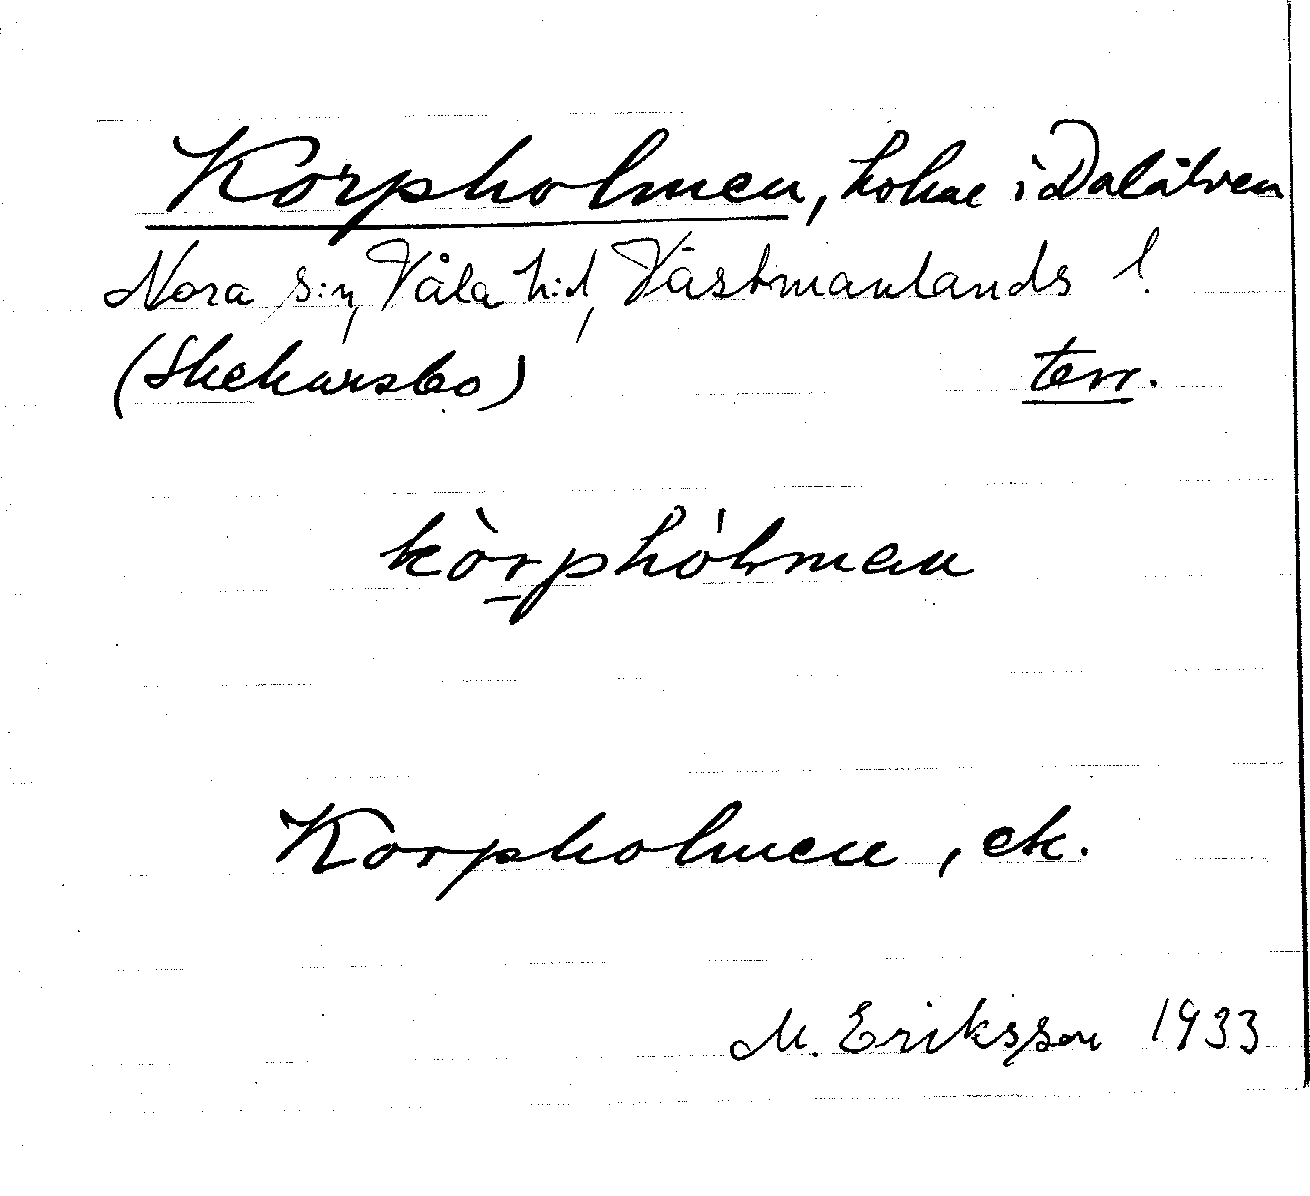 Korpholmen, holme i Dalälven
Nora s:n, Våla h:d, Västmanlands l.
(Skekarsbo) terr.
kòrphólmen
Korpholmen, ek.
M. Eriksson 1933